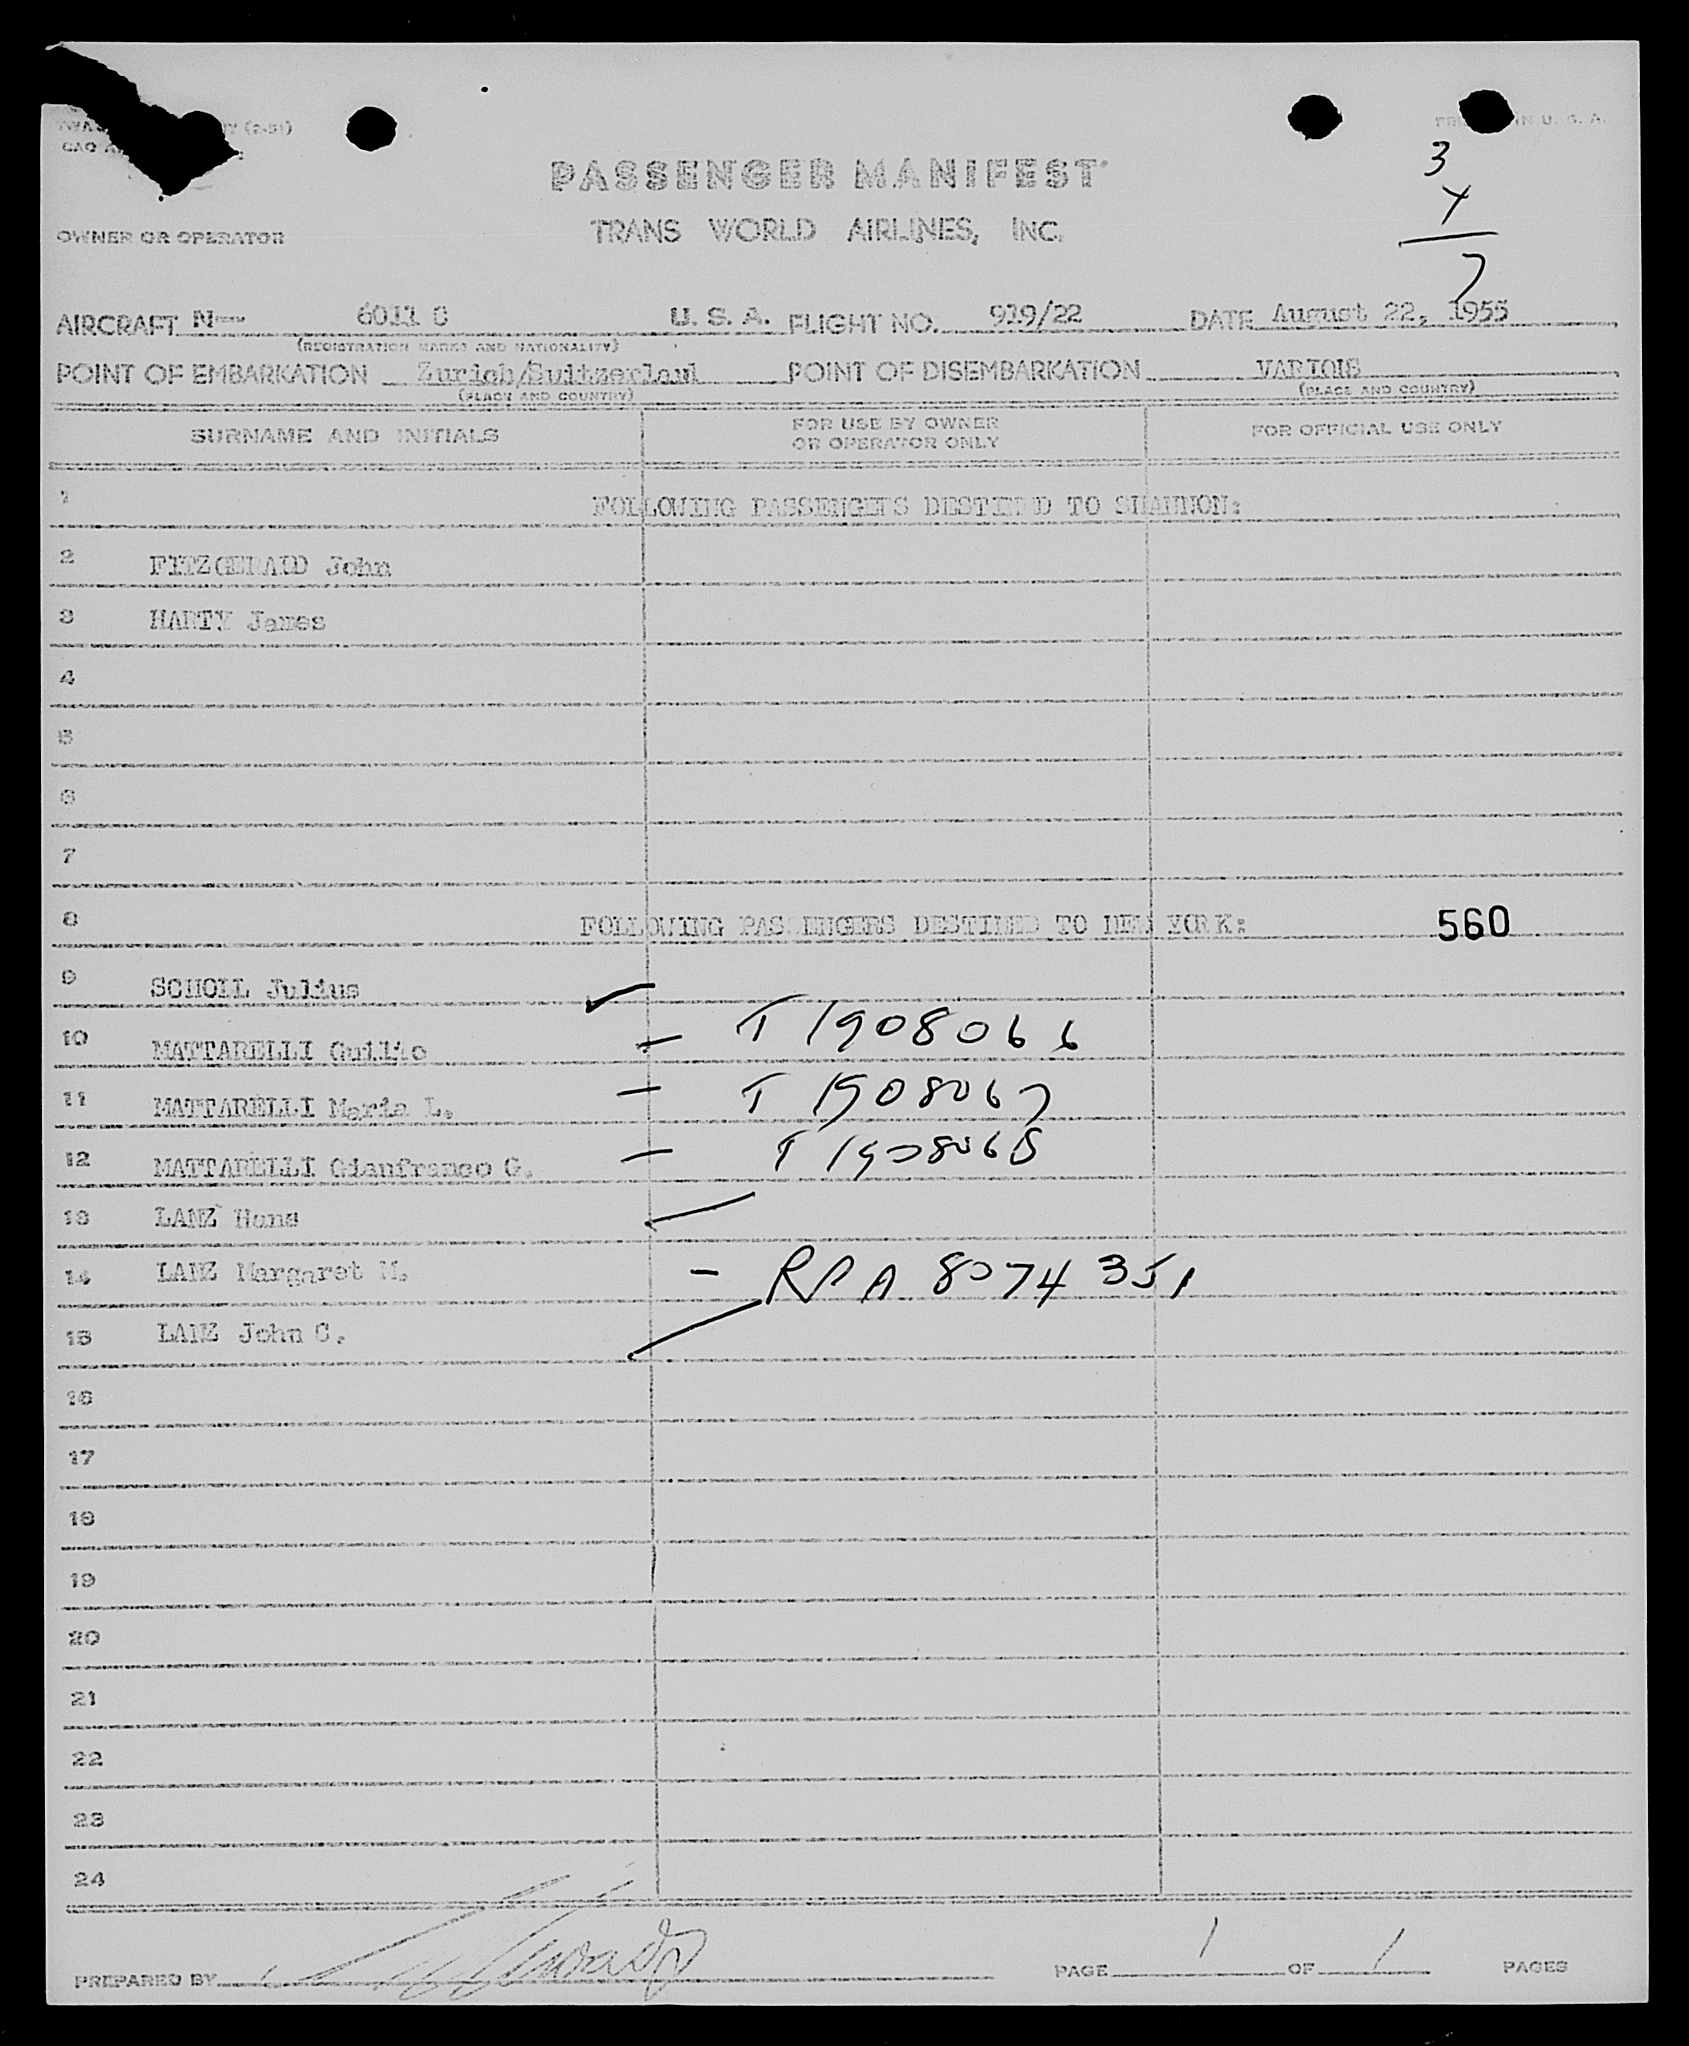 (2-51)
IN U. S. A.
PASSENGER MANIFEST
3
4
7
TRANS WORLD AIRLINES, INC.
OWNER OR OPERATOR
AIRCRAFT N-- 6011 C U. S. A. FLIGHT NO. 919/22 DATE August 22, 1955
(REGISTRATION MARKS AND NATIONALITY)
POINT OF EMBARKATION Zurich/Suitzerland POINT OF DISEMBARKATION VARIOUS
(PLACE AND COUNTRY) (PLACE AND COUNTRY)
SURNAME AND INITIALS FOR USE BY OWNER OR OPERATOR ONLY FOR OFFICIAL USE ONLY
1 FOLLOWING PASSENGERS DESTINED TO SHANNON:
2 FITZGERALD John
3 HARTY James
4
5
6
7
8 FOLLOWING PASSENGERS DESTINED TO NEW YORK: 560
9 SCHOLL Julius ✓
10 MATTARELLI Guilio - T 1908066
11 MATTARELLI Maria L. - T 1908067
12 MATTARELLI Gianfranco G. - T 1908068
13 LANZ Hans
14 LANZ Margaret M. - RPA 8074351
15 LANZ John C.
16
17
18
19
20
21
22
23
24
PREPARED BY PAGE 1 OF 1 PAGES